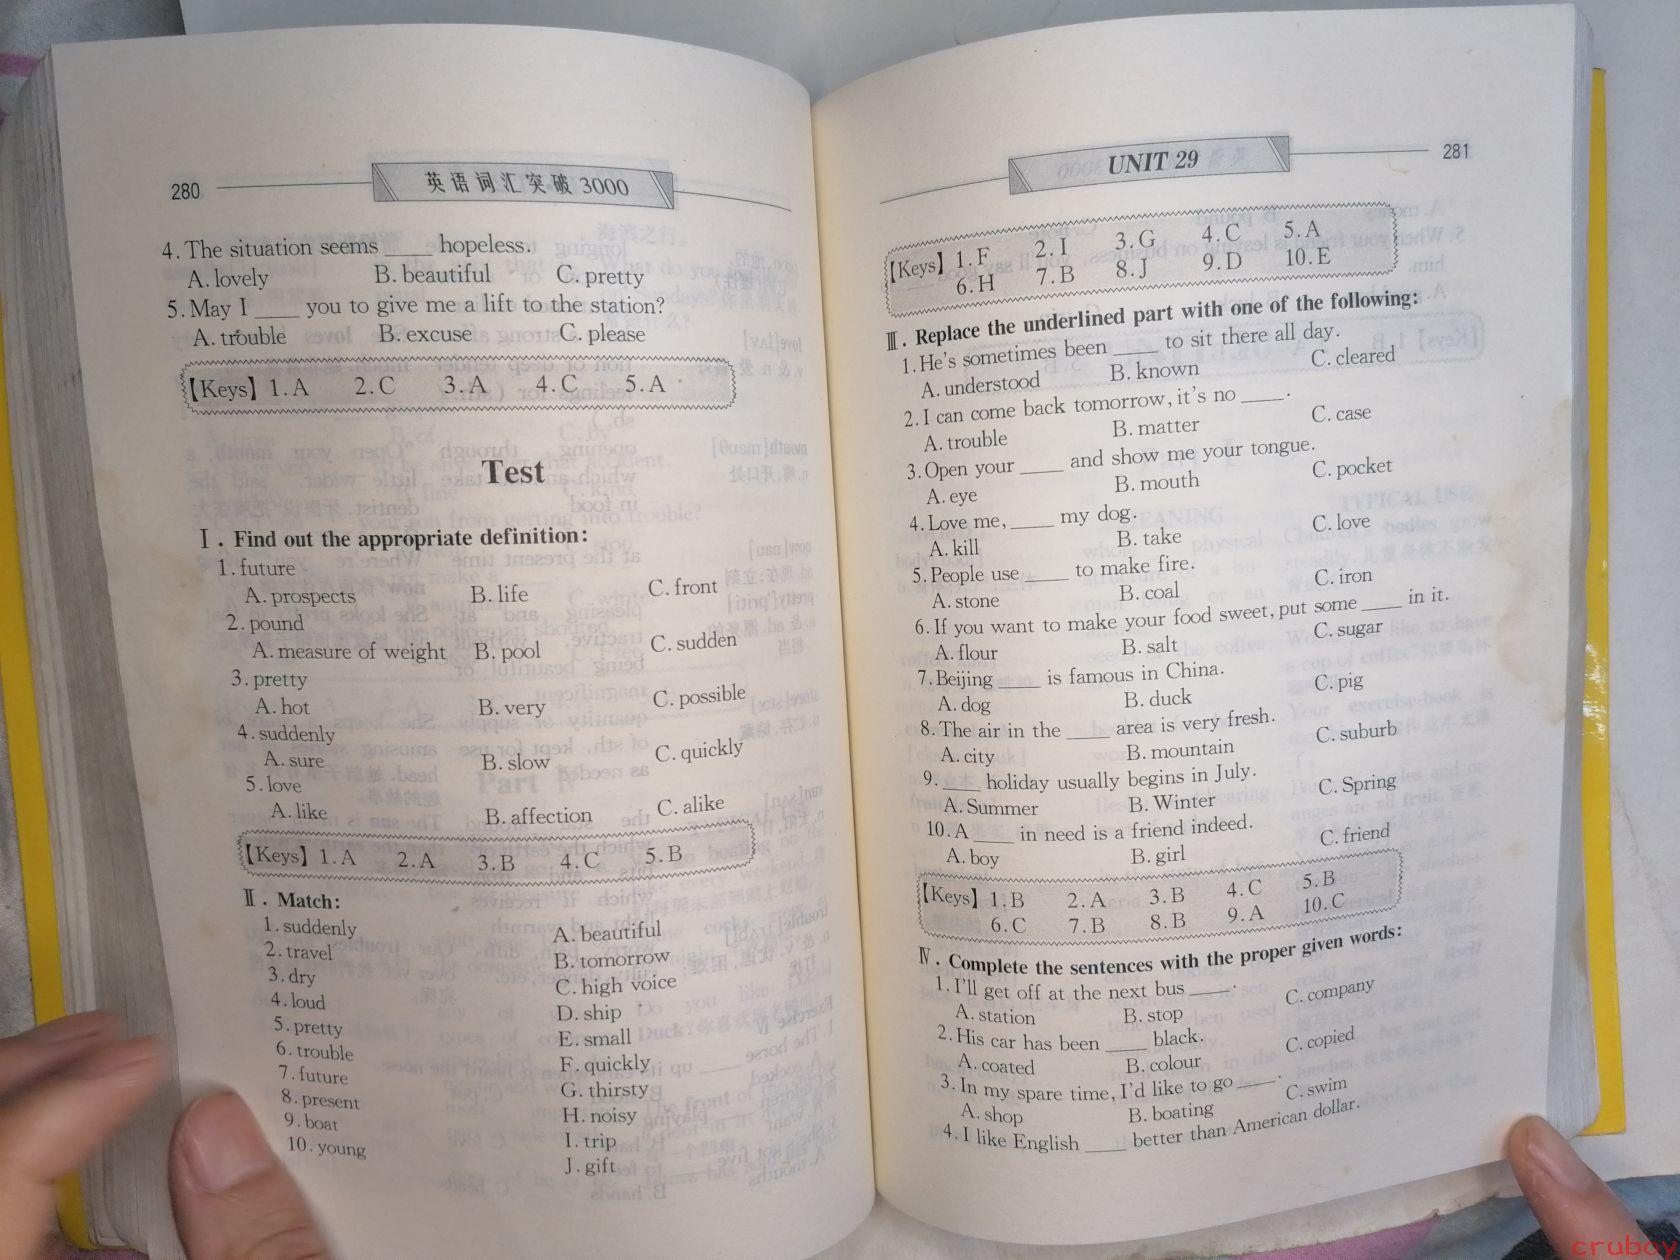 280 英语词汇突破3000
4. The situation seems ____ hopeless.
A. lovely B. beautiful C. pretty
5. May I ____ you to give me a lift to the station?
A. trouble B. excuse C. please
【Keys】 1. A 2. C 3. A 4. C 5. A
Test
Ⅰ. Find out the appropriate definition:
1. future
A. prospects B. life C. front
2. pound
A. measure of weight B. pool C. sudden
3. pretty
A. hot B. very C. possible
4. suddenly
A. sure B. slow C. quickly
5. love
A. like B. affection C. alike
【Keys】 1. A 2. A 3. B 4. C 5. B
Ⅱ. Match:
1. suddenly A. beautiful
2. travel B. tomorrow
3. dry C. high voice
4. loud D. ship
5. pretty E. small
6. trouble F. quickly
7. future G. thirsty
8. present H. noisy
9. boat I. trip
10. young J. gift
UNIT 29 281
【Keys】 1. F 2. I 3. G 4. C 5. A
6. H 7. B 8. J 9. D 10. E
Ⅲ. Replace the underlined part with one of the following:
1. He's sometimes been ____ to sit there all day.
A. understood B. known C. cleared
2. I can come back tomorrow, it's no ____.
A. trouble B. matter C. case
3. Open your ____ and show me your tongue.
A. eye B. mouth C. pocket
4. Love me, ____ my dog.
A. kill B. take C. love
5. People use ____ to make fire.
A. stone B. coal C. iron
6. If you want to make your food sweet, put some ____ in it.
A. flour B. salt C. sugar
7. Beijing ____ is famous in China.
A. dog B. duck C. pig
8. The air in the ____ area is very fresh.
A. city B. mountain C. suburb
9. ____ holiday usually begins in July.
A. Summer B. Winter C. Spring
10. A ____ in need is a friend indeed.
A. boy B. girl C. friend
【Keys】 1. B 2. A 3. B 4. C 5. B
6. C 7. B 8. B 9. A 10. C
Ⅳ. Complete the sentences with the proper given words:
1. I'll get off at the next bus ____.
A. station B. stop C. company
2. His car has been ____ black.
A. coated B. colour C. copied
3. In my spare time, I'd like to go ____.
A. shop B. boating C. swim
4. I like English ____ better than American dollar.
cruboy